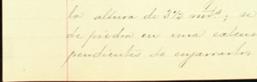 la altura de 3½ mts; se
de piedra en una estens
pendientes de enjarrarlos